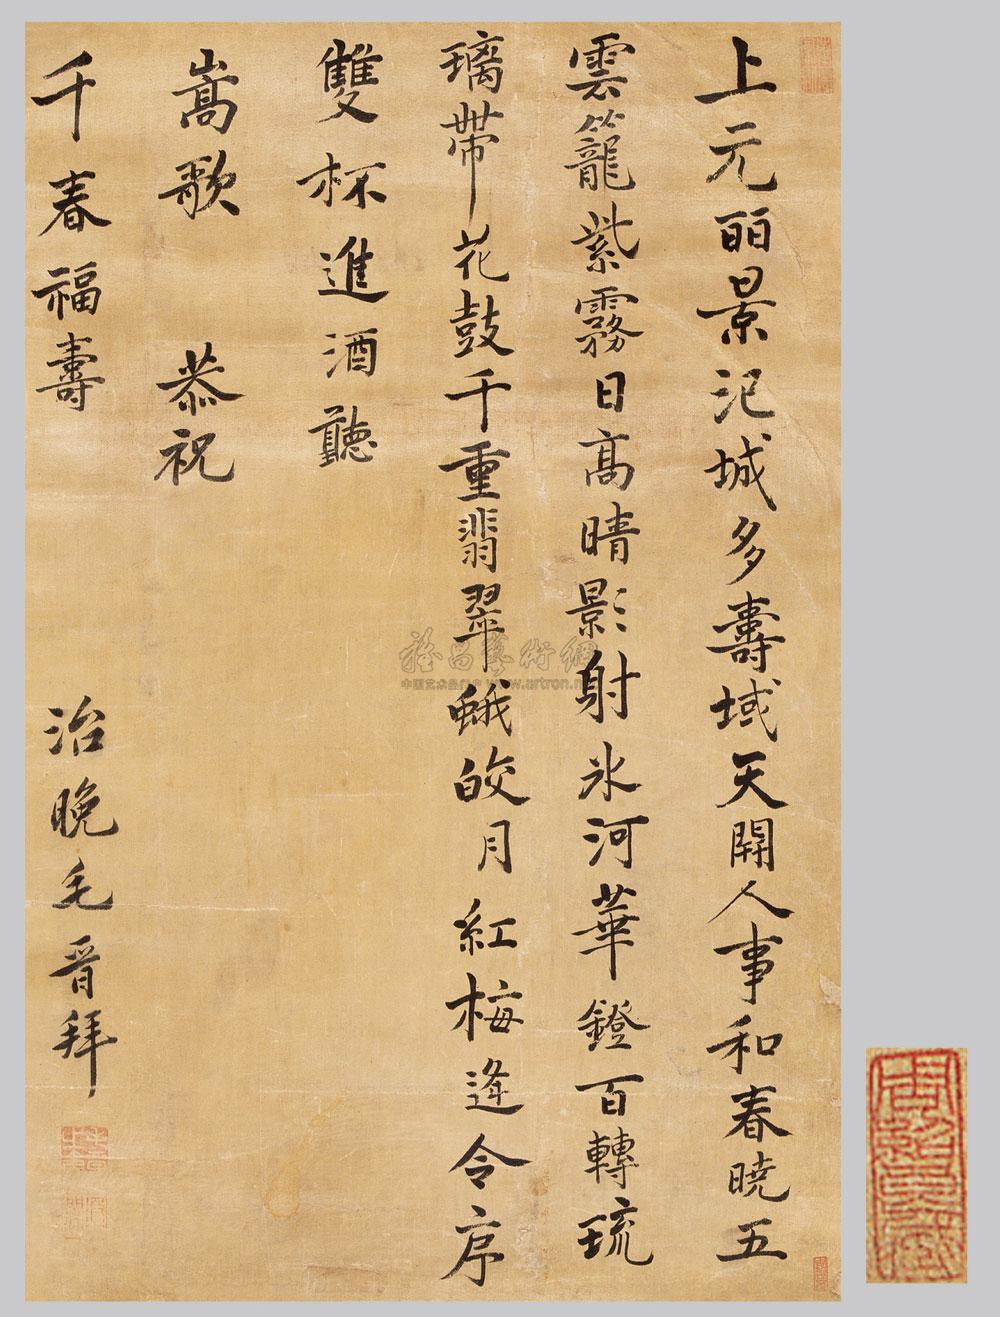 上元丽景汜城多壽域天開人事和春曉五
雲籠紫霧日高晴影射氷河華鐙百轉琉
璃帶花鼓千重翡翠蛾皎月紅梅逢令序
雙杯進酒聽
嵩歌 恭祝
千春福壽
治晚毛晋拜
雅昌藝術網
www.artron.net